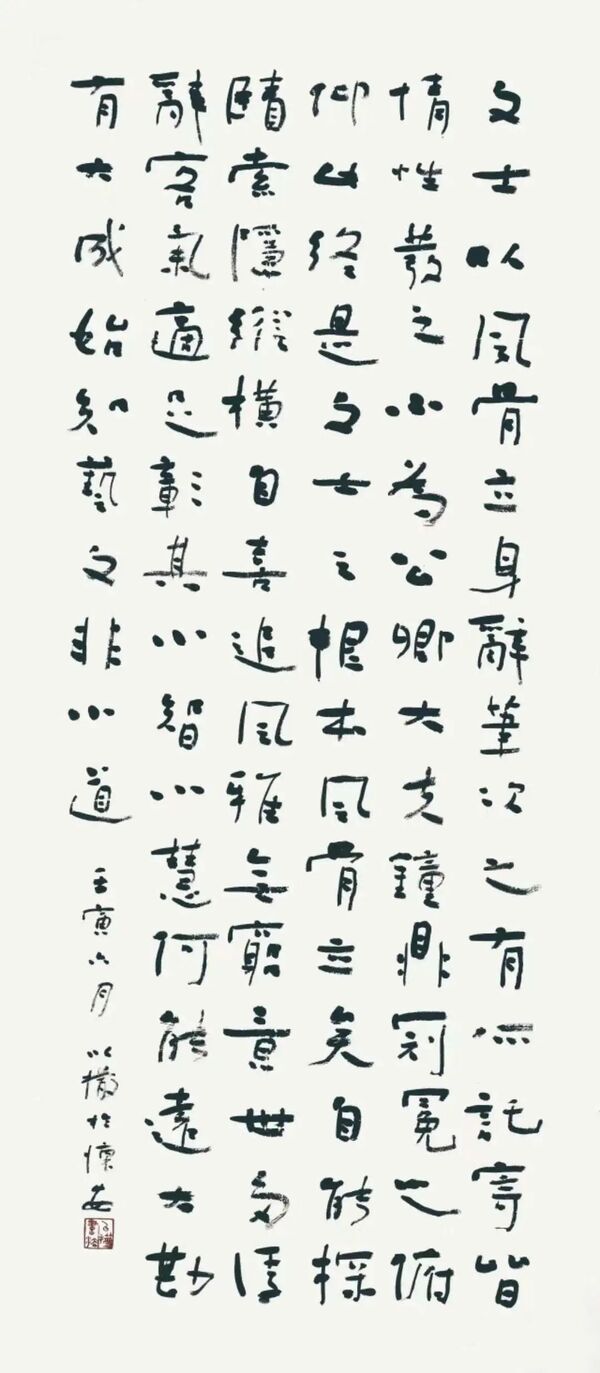 文士以風骨立身辭筆次之有所託寄皆
情性發之不為公卿大夫鐘鼎冠冕之俯
仰此終是文士之根本風骨立矣自能探
賾索隱縱橫自喜追風雅無窮意世多浮
辭客氣適足彰其小智小慧何能遠大勘
有大成始知藝文非小道
壬寅六月